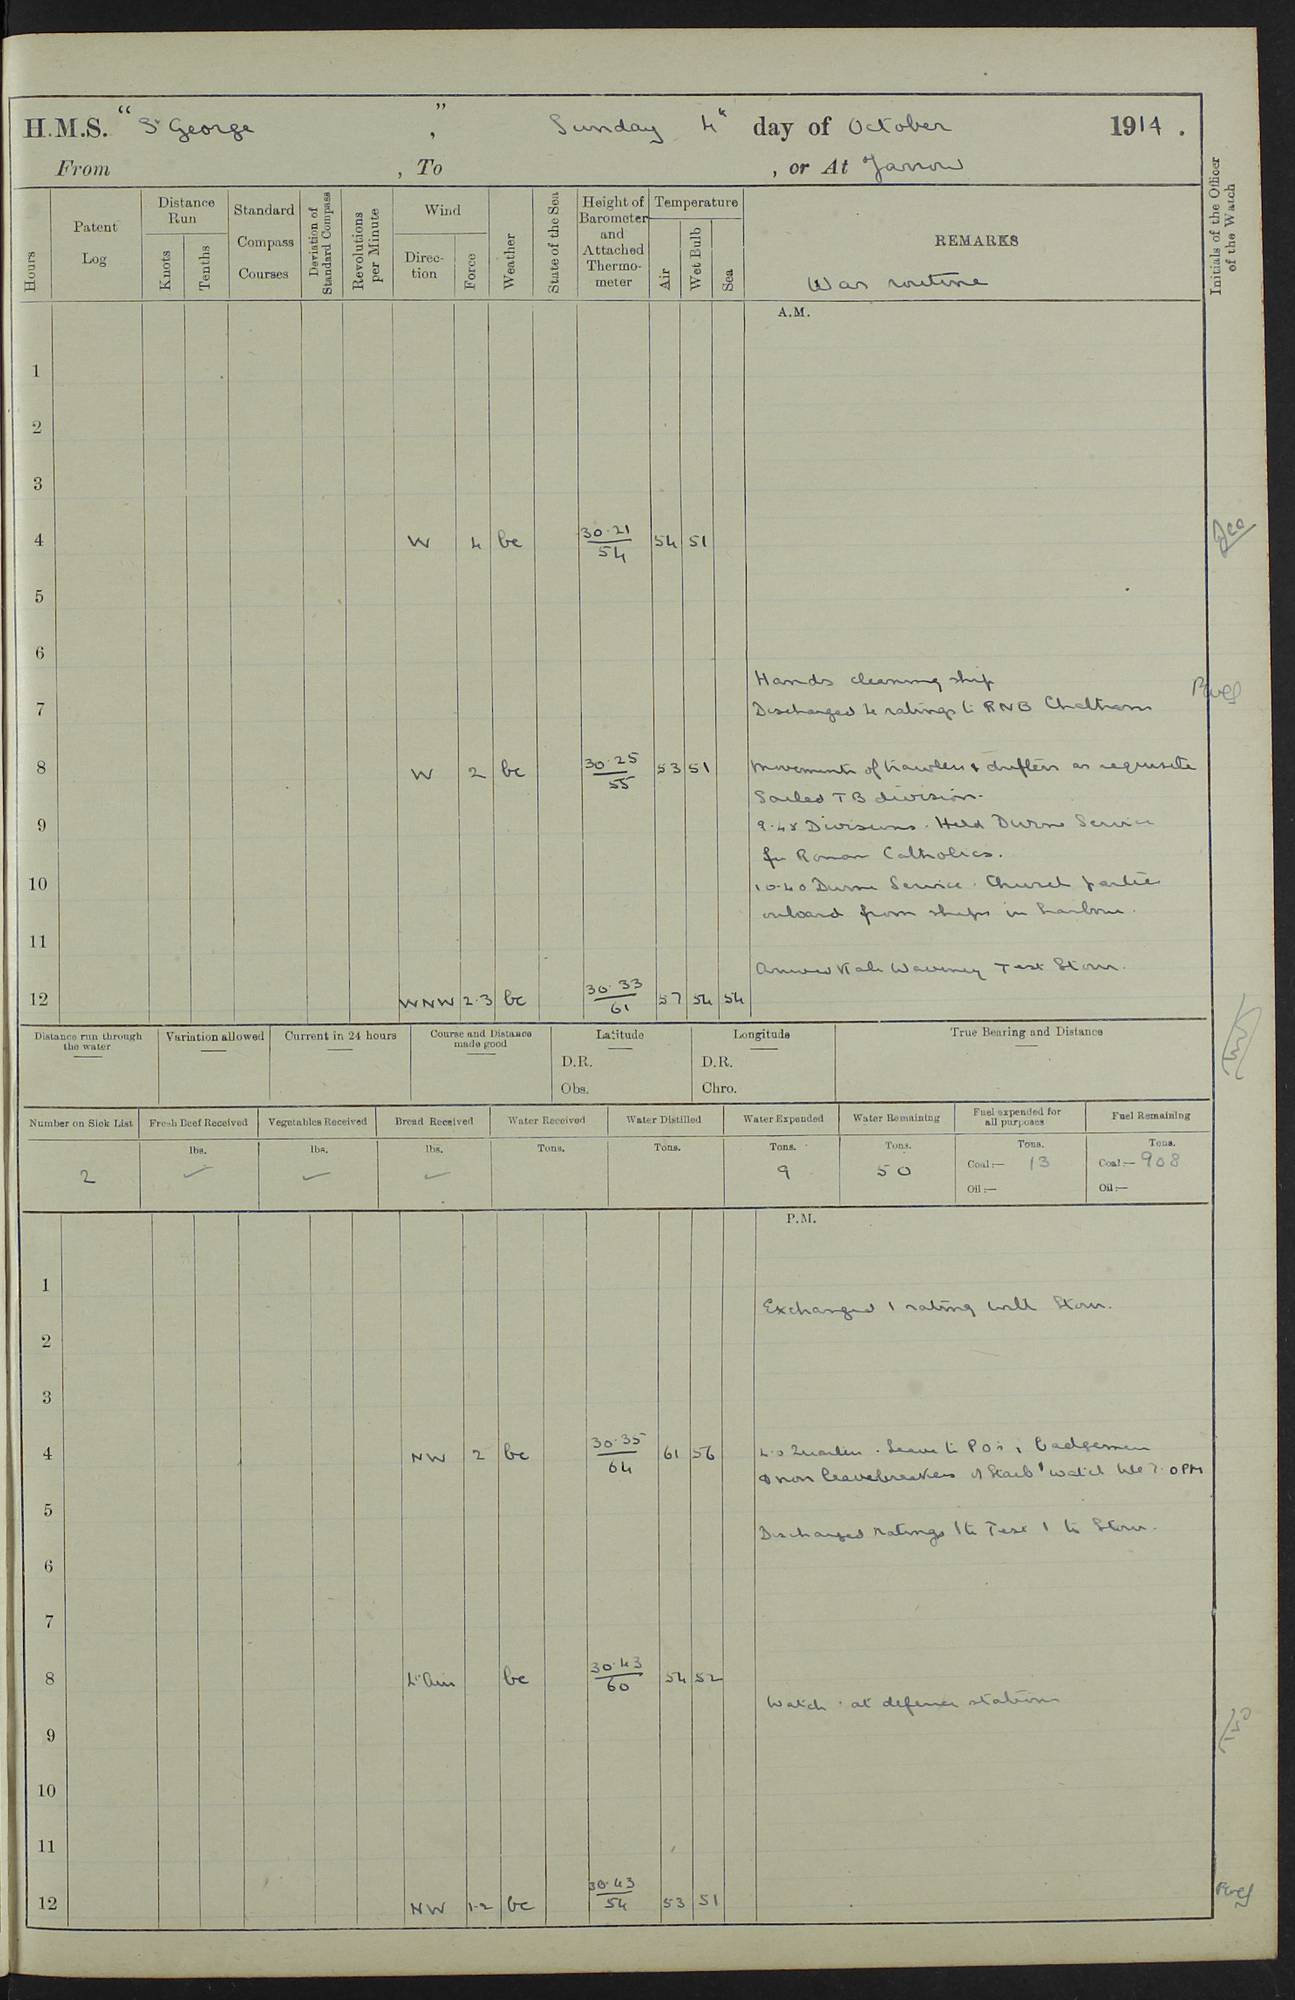 H.M.S. "St George", Sunday 4th day of October 1914.
From , To , or At Jarrow
Hours
Patent Log
Distance Run
Knots
Tenths
Standard Compass Courses
Deviation of Standard Compass
Revolutions per Minute
Wind
Direction
Force
Weather
State of the Sea
Height of Barometer and Attached Thermometer
Temperature
Air
Wet Bulb
Sea
REMARKS
War routine
Initials of the Officer of the Watch
A.M.
1
2
3
4 W 4 bc 30.21/54 54 51
5
6
Hands cleaning ship
7 Discharged 4 ratings to RNB Chatham
8 W 2 bc 30.25/55 53 51 Movements of trawlers & drifters as requisite
Sailed TB division.
9 9.45 Divisions. Held Divine Service
for Roman Catholics.
10 10.40 Divine Service. Church parties
onboard from ships in harbour.
11
Arrived Kale Waveney Test Stour.
12 WNW 2.3 bc 30.33/61 57 54 54
Distance run through the water
Variation allowed
Current in 24 hours
Course and Distance made good
Latitude
D.R.
Obs.
Longitude
D.R.
Chro.
True Bearing and Distance
Number on Sick List
Fresh Beef Received
Vegetables Received
Bread Received
Water Received
Water Distilled
Water Expended
Water Remaining
Fuel expended for all purposes
Fuel Remaining
lbs. lbs. lbs. Tons. Tons. Tons. Tons. Tons. Tons.
2 ✓ ✓ ✓ 9 50 Coal:— 13 Coal:— 908
Oil:— Oil:—
P.M.
1
Exchanged 1 rating with Stour.
2
3
4 NW 2 bc 30.35/64 61 56 4.0 Quarters. Leave to POs, badgemen
& non leavebreakers of Starbd watch till 7.0 PM
5
Discharged ratings 1 to Test 1 to Stour.
6
7
8 Lt Airs bc 30.43/60 54 52
Watch at defence stations
9
10
11
12 NW 1-2 bc 30.43/54 53 51